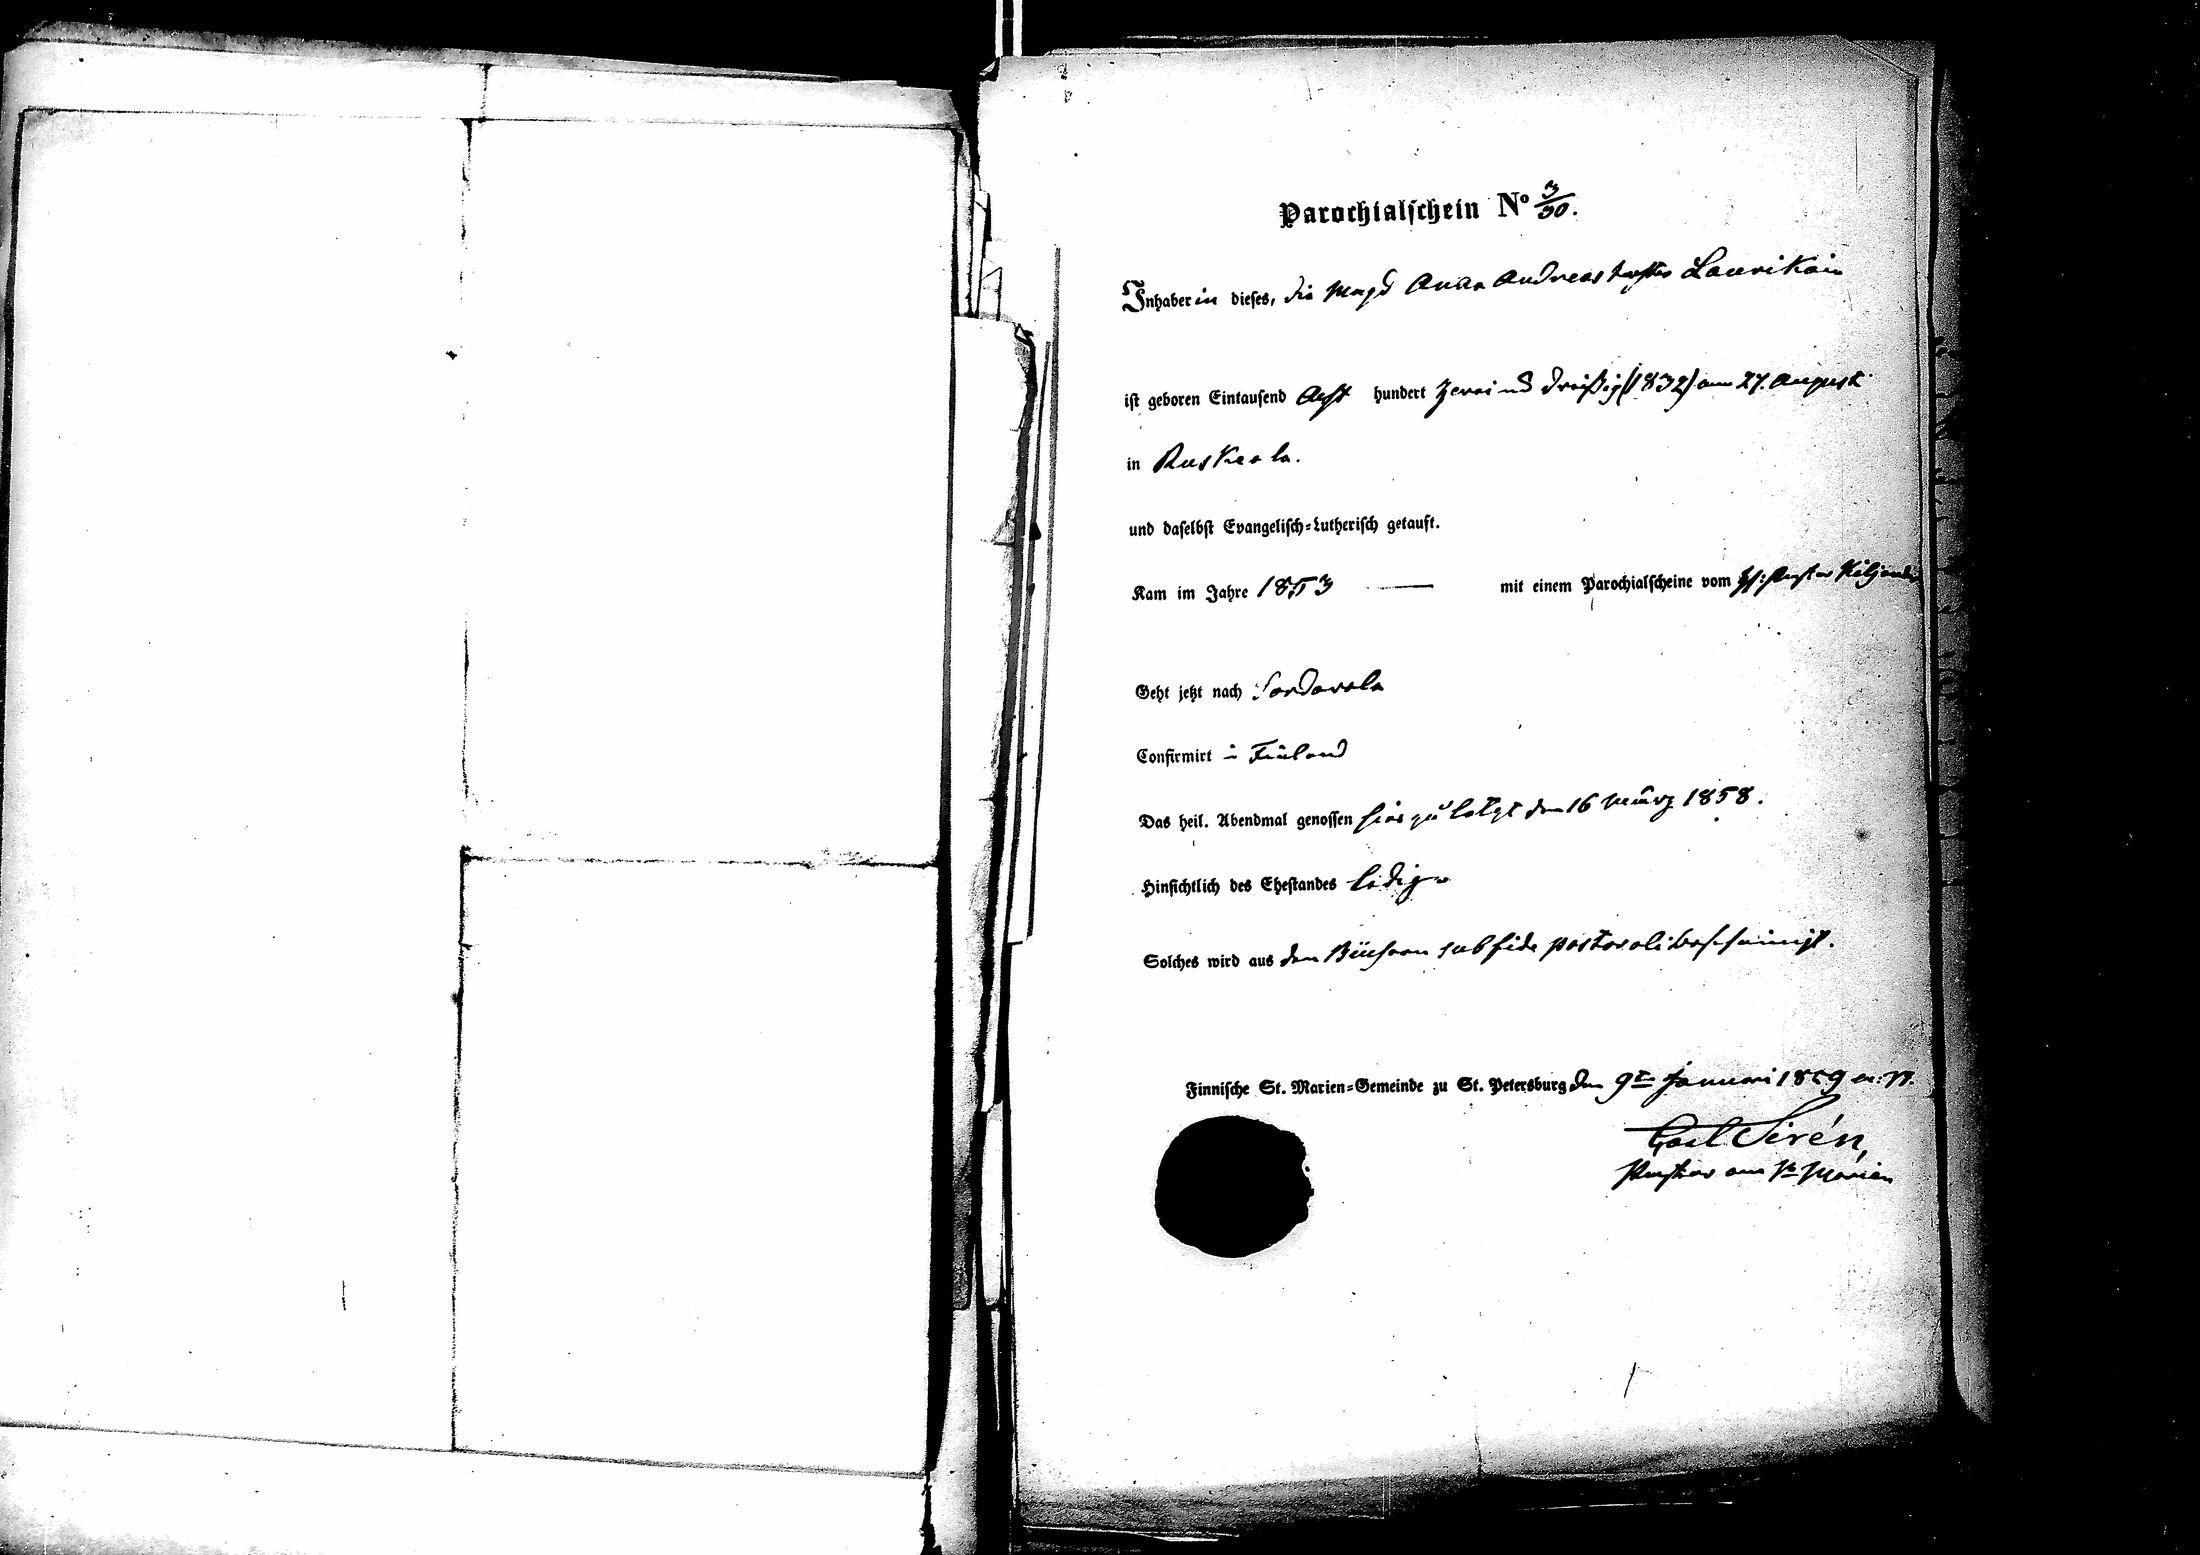 Parochialschein No 3/30.
Inhaberin dieses, die Magd Anna Andreastochter Laurikain
ist geboren Eintausend Acht hundert zwei und dreißig (1832) am 27. August
in Ruskeala.
und daselbst Evangelisch-Lutherisch getauft.
Kam im Jahre 1853 — mit einem Parochialscheine vom Hr: Pastor Kiljander
Geht jetzt nach Sordavala
Confirmirt in Finland
Das heil. Abendmal genossen hier zuletzt den 16 März 1858.
Hinsichtlich des Ehestandes ledig
Solches wird aus den Büchern sub fide pastorali bescheinigt.
Finnische St. Marien-Gemeinde zu St. Petersburg den 9ten Januari 1859
Carl Sirén,
Pastor an St Marien